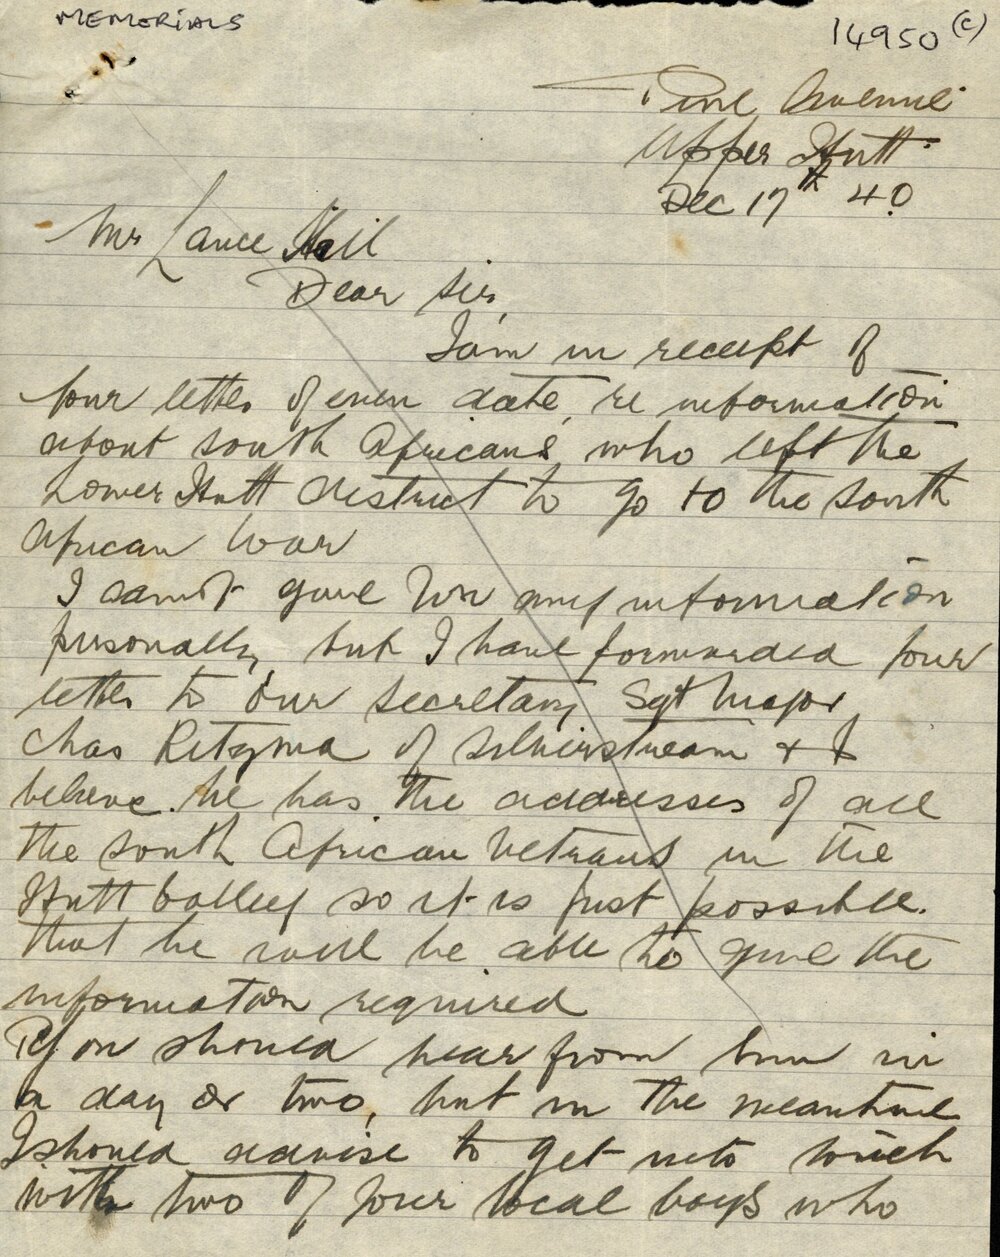 MEMERIALS
14950 (c)
Pine Avenue
Upper Hutt
Dec 17th 40
Mr Lance Hail
Dear Sir,
I am in receipt of
your letter of even date, re information
about South Africans, who left the
Lower Hutt district to go to the South
African War
I cannot give you any information
personally, but I have forwarded your
letter to our secretary Sgt Major
Chas Ritzma of Silverstream & I
believe he has the addresses of all
the South African Vetrans in the
Hutt Valley so it is just possible.
that he will be able to give the
information required
You should hear from him in
a day or two, but in the meantime
I should advise to get into touch
with two of your local boys who